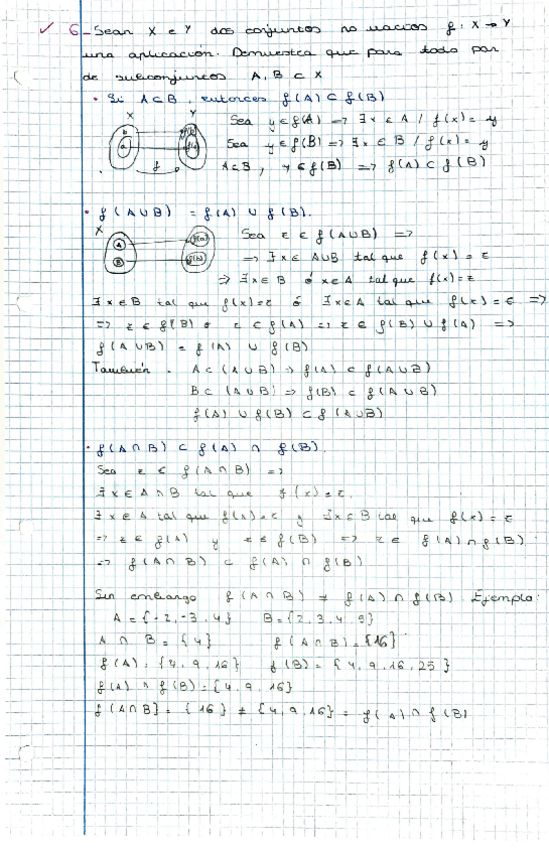 ✓ 6_ Sean X e Y dos conjuntos no vacíos f: X → Y
una aplicación. Demuestra que para todo par
de subconjuntos A, B ⊂ X
• Si A ⊂ B, entonces f(A) ⊂ f(B)
X Y
b f(b)
a f(a)
f
Sea y ∈ f(A) => ∃ x ∈ A / f(x) = y
Sea y ∈ f(B) => ∃ x ∈ B / f(x) = y
A ⊂ B, y ∈ f(B) => f(A) ⊂ f(B)
• f(A ∪ B) = f(A) ∪ f(B).
X
A f(A)
B f(B)
Sea z ∈ f(A ∪ B) =>
=> ∃ x ∈ A ∪ B tal que f(x) = z
=> ∃ x ∈ B ó x ∈ A tal que f(x) = z
∃ x ∈ B tal que f(x) = z ó ∃ x ∈ A tal que f(x) = z =>
=> z ∈ f(B) o z ∈ f(A) => z ∈ f(B) ∪ f(A) =>
f(A ∪ B) = f(A) ∪ f(B)
También. A ⊂ (A ∪ B) => f(A) ⊂ f(A ∪ B)
B ⊂ (A ∪ B) => f(B) ⊂ f(A ∪ B)
f(A) ∪ f(B) ⊂ f(A ∪ B)
• f(A ∩ B) ⊂ f(A) ∩ f(B).
Sea z ∈ f(A ∩ B) =>
∃ x ∈ A ∩ B tal que f(x) = z.
∃ x ∈ A tal que f(x) = z y ∃ x ∈ B tal que f(x) = z
=> z ∈ f(A) y z ∈ f(B) => z ∈ f(A) ∩ f(B)
=> f(A ∩ B) ⊂ f(A) ∩ f(B)
Sin embargo f(A ∩ B) ≠ f(A) ∩ f(B). Ejemplo:
A = {-2, -3, 4} B = {2, 3, 4, }
A ∩ B = {4} f(A ∩ B) = {16}
f(A) = {4, 9, 16} f(B) = {4, 9, 16, 25}
f(A) ∩ f(B) = {4, 9, 16}
f(A ∩ B] = {16} ≠ {4, 9, 16} = f(A) ∩ f(B)